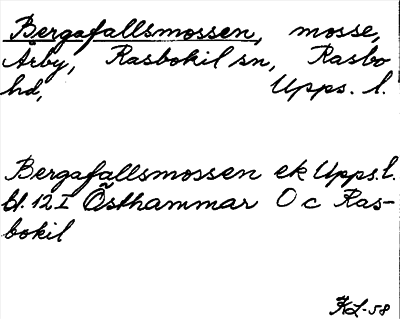 Bergafallsmossen, mosse,
Årby, Rasbokil sn, Rasbo
hd, Upps. l.
Bergafallsmossen ek Upps.l.
bl. 12 I Östhammar O c Ras-
bokil
KL-58